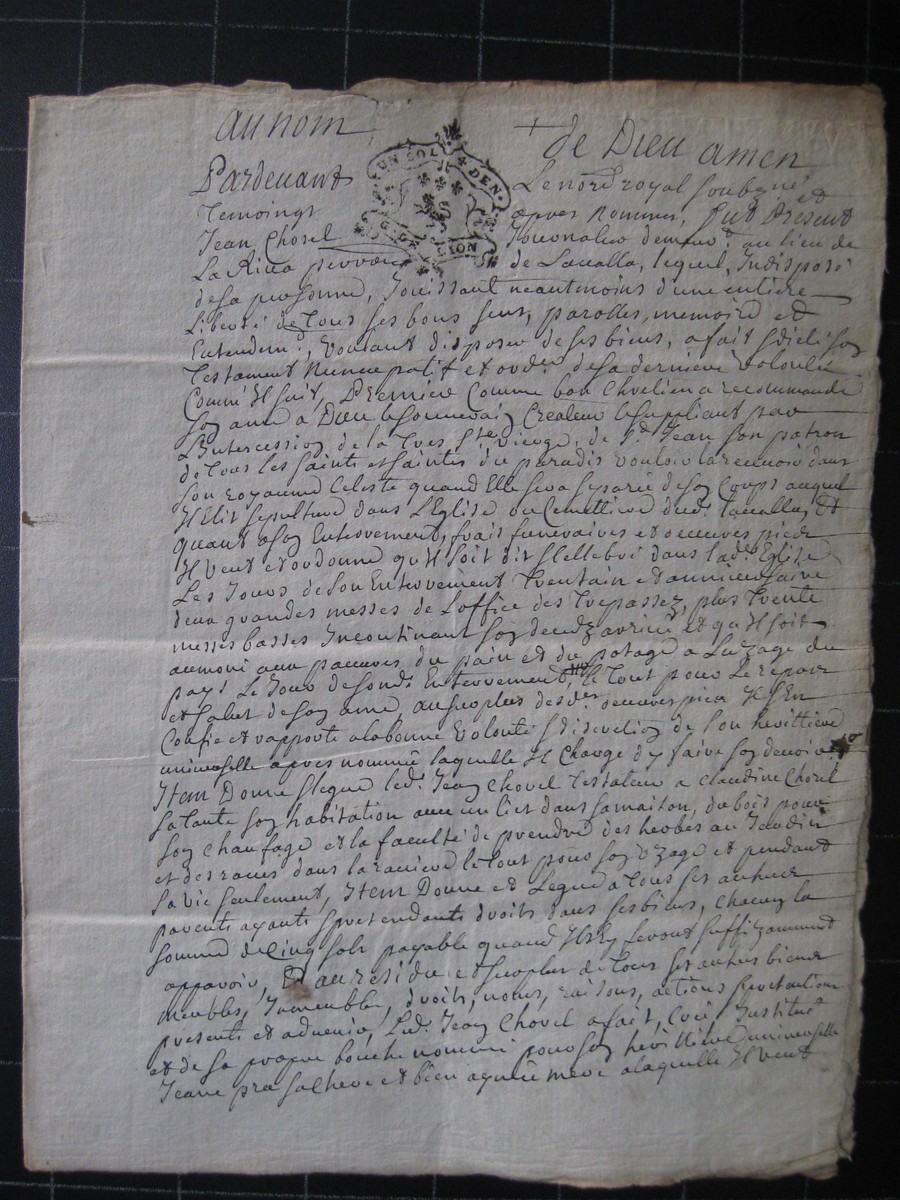 au nom + de Dieu amen
UN SOL DEN.
G. DE LION
Pardevant Le no.re royal soubzné et
temoings apres nommes, fut present
Jean Chorel Journalier demeur.t au lieu de
La Riva parroisse de Lavalla, lequel, Indisposé
de sa personne, Jouissant neantmoins d'une entiere
Liberté de tous ses bons sens, parolles, memoire et
Entendem.t, voulant disposer de ses biens, a fait & dicté son
testament Nuncupatif et ord.re de sa derniere volonté
Comm'Il suit, Premiere Comme bon Chretien a recommandé
son ame a Dieu le souverain Createur le supliant par
L'Intercession de la tres S.te Vierge, de S.t Jean son patron
de tous les saints et saintes du paradis vouloir la recevoir dans
son royaume Celeste quand Elle sera separée de son Corps auquel
Il Elit sepulture dans L'Eglise ou Cimettiere dud. Lavalla, Et
quant a son Enterrement, frais funeraires et oeuvres pies
Il veut et ordonne qu'Il soit dit & Cellebré dans lad. Eglise
Les Jours de son Enterrement trentain et anniversaire
deux grandes messes de L'office des trepassez, plus trente
messes basses Incontinant son decedz arrivé et qu'Il soit
aumoné aux pauvres du pain et du potage a L'uzage du
pays Le Jour de sond. Enterrement, le tout pour Le repos
et salut de son ame au surplus desd. oeuvres pies Il s'En
Confie et rapporte a la bonne volonté & discretion de son herittiere
universelle apres nommée laquelle Il Charge d'y faire son devoir.
Item Donne & legue led. Jean Chorel testateur a Claudine Chorel
sa tante son habitation avec un lict dans sa maison, du bois pour
son chaufage et la faculté de prendre des herbes au Jardin
et des raves dans la raviere le tout pour son uzage et pendant
sa vie seulement, Item Donne et Legue a tous ses autres
parents ayants & pretendants droits dans ses biens, chacun la
somme de Cinq sols payable quand Ils seront suffizamment
apparoir, Et au residu et surplus de tous ses autres biens
meubles, Immeubles, droits, noms, raisons, actions & pretentions
presents et advenir, Led. Jean Chorel a fait, Créé, Institué
et de sa propre bouche nommé pour son heritiere universelle
Jeanne sa chere et bien aymée mere a laquelle Il veut